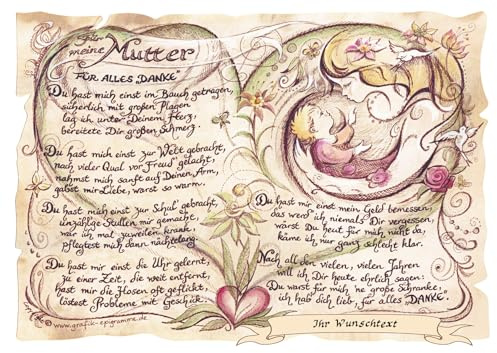 Für
meine Mutter
FÜR ALLES „DANKE"
Du hast mich einst im Bauch getragen,
sicherlich mit großen Plagen
lag ich unter Deinem Herz,
bereitete Dir großen Schmerz.
Du hast mich einst zur Welt gebracht,
nach vieler Qual vor Freud' gelacht,
nahmst mich sanft auf Deinen Arm,
gabst mir Liebe, warst so warm.
Du hast mich einst zur Schul' gebracht,
unzählge Stullen mir gemacht,
war ich mal zuweilen krank,
pflegtest mich dann nächtelang.
Du hast mir einst die Uhr gelernt,
zu einer Zeit, die weit entfernt,
hast mir die Hosen oft geflickt,
löstest Probleme mit Geschick.
Du hast mir einst mein Geld bemessen,
das werd ich niemals Dir vergessen,
wärst Du heut für mich nicht da,
käme ich nur ganz schlecht klar.
Nach all den vielen, vielen Jahren
will ich Dir heute ehrlich sagen:
Du warst für mich 'ne große Schranke,
ich hab dich lieb, für alles „DANKE".
© www.grafik-epigramme.de
Ihr Wunschtext